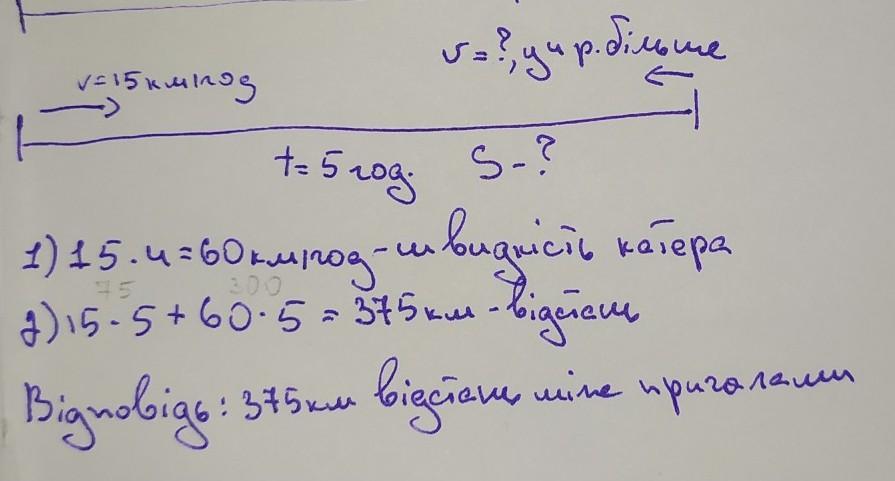 v=?, у 4 р. більше
v=15 км/год
t=5 год. S-?
1) 15·4=60 км/год-швидкість катера
75 300
2) 15·5+60·5=375 км-відстань
Відповідь: 375 км відстань між причалами